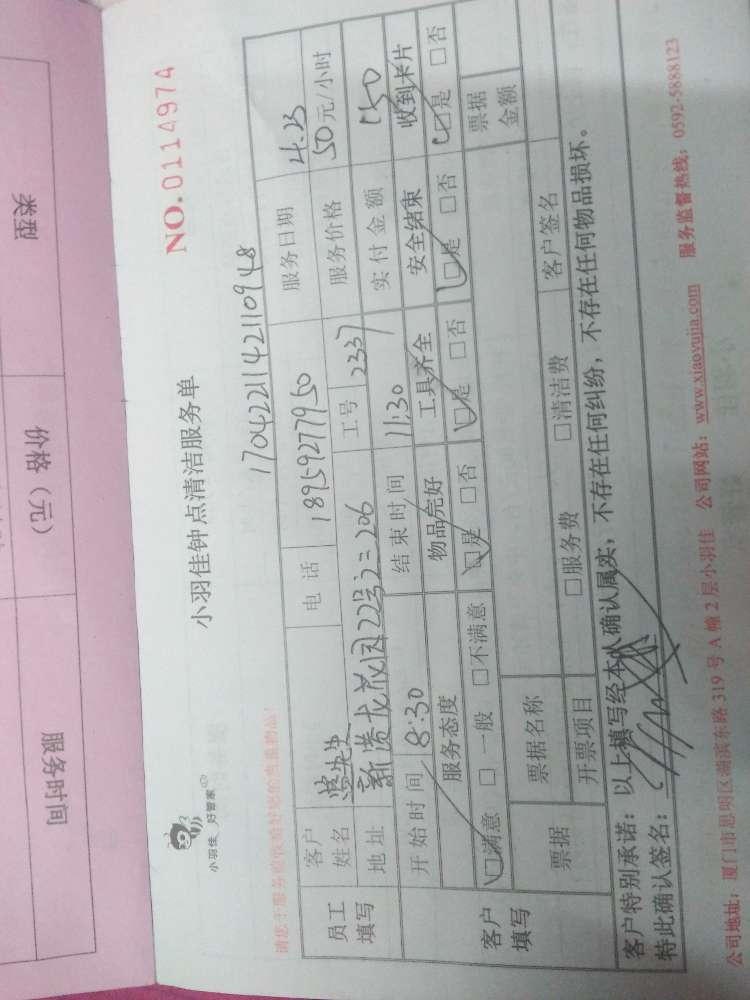 类型
价格（元）
服务时间
小羽佳 好管家
小羽佳钟点清洁服务单
NO.0114974
170422114211094 8
员工填写 客户姓名 电话 18959277950 服务日期 4.23
地址 新港龙花园22号2=206 工号 2337 服务价格 50元/小时
开始时间 8:30 结束时间 11:30 实付金额 150
客户填写 服务态度 物品完好 工具齐全 安全结束 收到卡片
□满意 □一般 □不满意 □是 □否 □是 □否 □是 □否 □是 □否
票据 票据名称 票据金额
开票项目 □服务费 □清洁费 客户签名
客户特别承诺：以上填写经本人确认属实，不存在任何纠纷，不存在任何物品损坏。
特此确认签名：
公司地址：厦门市思明区湖滨东路319号A幢2层小羽佳 公司网站：www.xiaoyujia.com 服务监督热线：0592-5888123